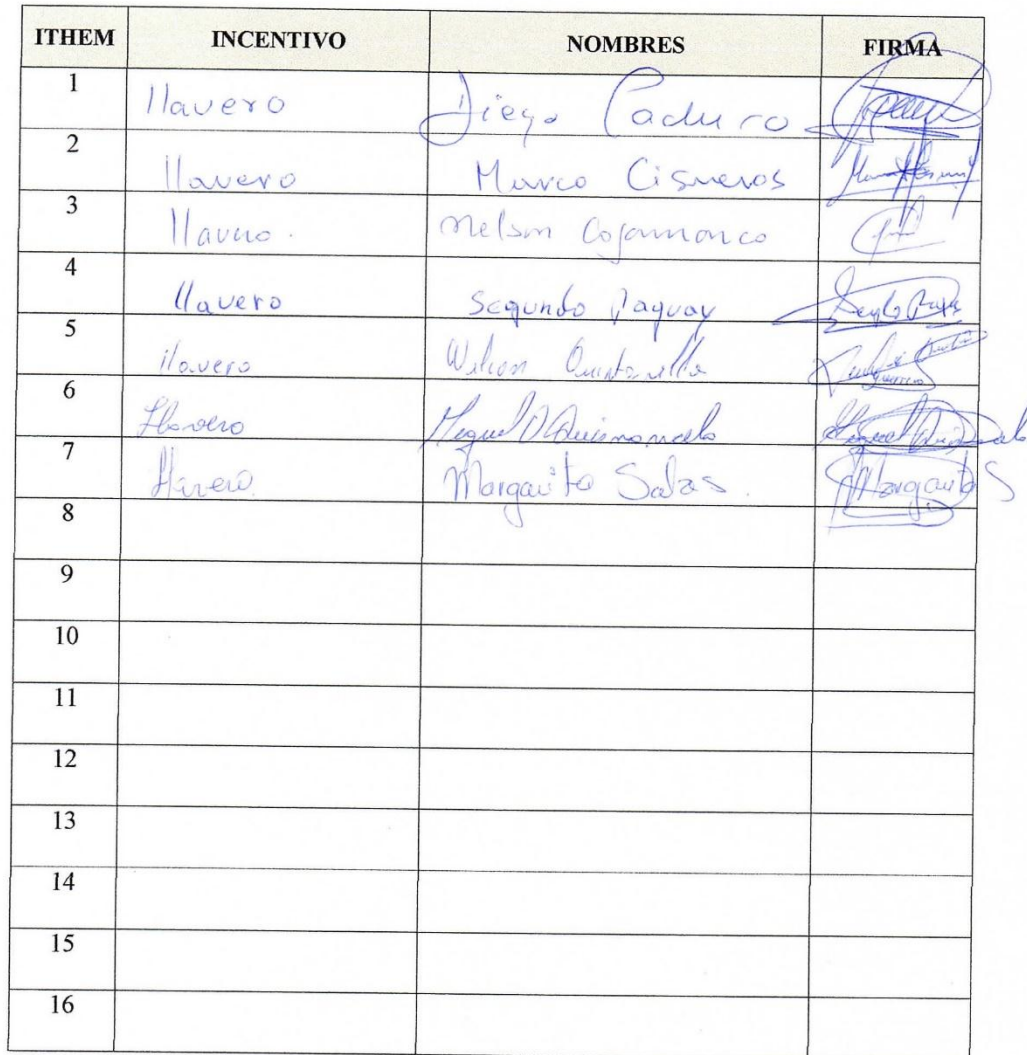 ITHEM INCENTIVO NOMBRES FIRMA
1 llavero Diego
2 llavero Marco Cisneros
3 llavero. Nelson Cajamarca
4 llavero Segundo Paguay
5 llavero Wilson Quintanilla
6 llavero Miguel
7 llavero. Margarita Salas. Margarita S
8
9
10
11
12
13
14
15
16